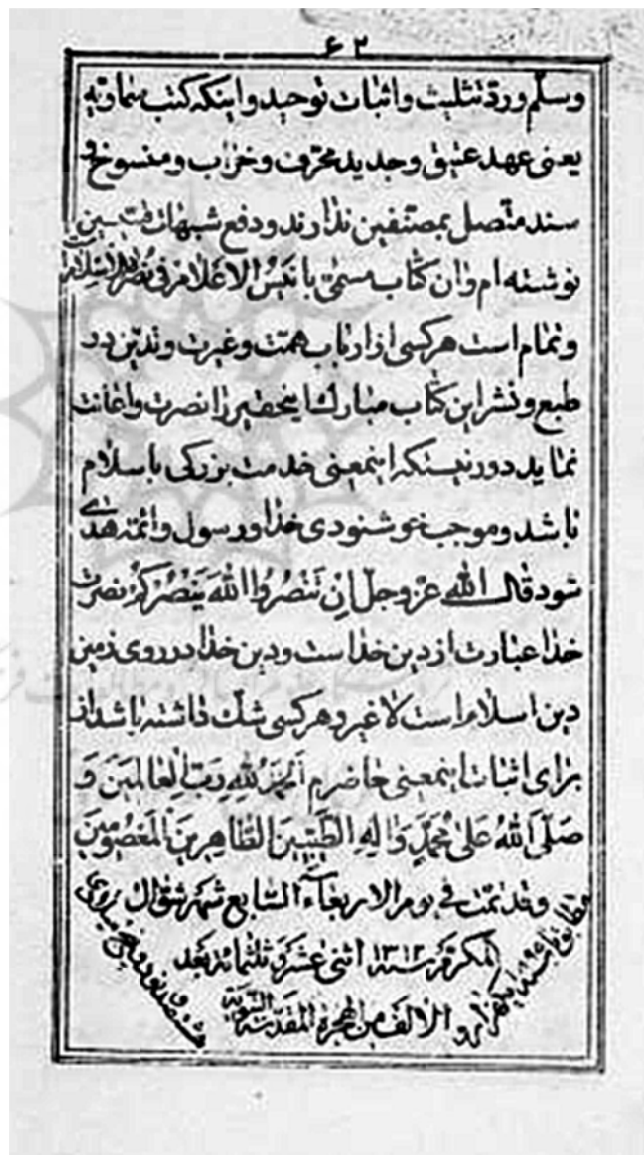 ۶۲
وسلم ورد تثلیث واثبات توحید واینکه کتب سماویه
یعنی عهد عتیق وجدید محرّف وخراب ومنسوخ و
سند متصل بمصنفین ندارند ودفع شبهات قسیسین
نوشته ام وان کتاب مسمّی بانیس الاعلام فی نصرة الاسلام
وتمام است هرکسی از ارباب همّت وغیرت وتدیّن در
طبع ونشر این کتاب مبارک اینحقیر را نصرت واعانت
نماید دور نیست که اینمعنی خدمت بزرکی باسلام
باشد وموجب خوشنودی خدا ورسول وائمّه هدی
شود قال الله عزّ وجلّ اِنْ تَنْصُرُوا اللهَ یَنْصُرْکُمْ نصرت
خدا عبارت از دین خداست ودین خدا در روی زمین
دین اسلام است لا غیر وهرکسی شک داشته باشد از
برای اثبات اینمعنی حاضرم اَلْحَمْدُ لِلّهِ رَبِّ الْعالَمینَ وَ
صَلَّی اللهُ عَلی مُحَمَّدٍ وَالِهِ الطَّیِّبینَ الطّاهِرینَ الْمَعْصُومینَ
وقد تمّت فی یوم الاربعآء السّابع شهر شوّال
المکرّم سنه ۱۳۱۲ اثنی عشر وثلثمائة بعد
الالف من الهجرة المقدّسة النّبویّة
مطابق سنه ۱۸۹۵ یکهزار و
هشتصد نود وپنج میلادی